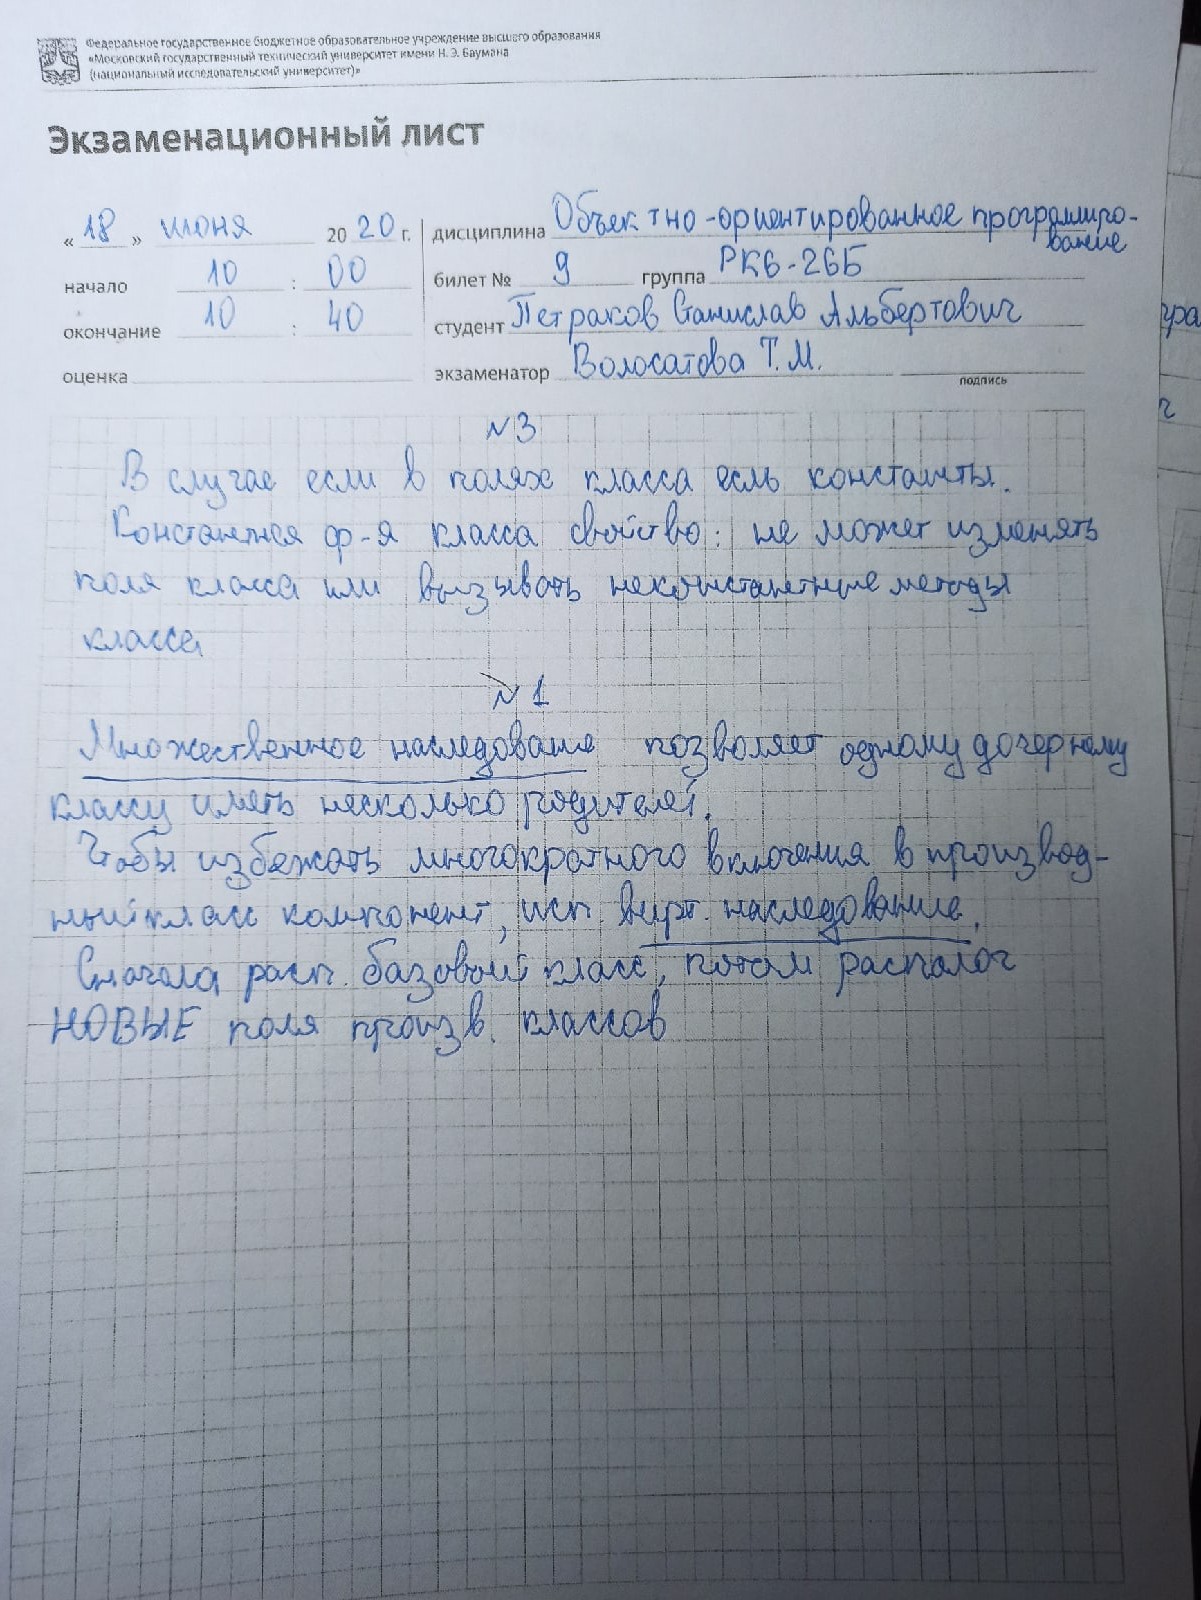 Федеральное государственное бюджетное образовательное учреждение высшего образования
«Московский государственный технический университет имени Н. Э. Баумана
(национальный исследовательский университет)»
Экзаменационный лист
« 18 » июня 20 20 г.
дисциплина Объектно-ориентированное программиро-
вание
начало 10 : 00
билет № 9 группа РК6-26Б
окончание 10 : 40
студент Петраков Станислав Альбертович
оценка
экзаменатор Волосатова Т.М.
подпись
N3
В случае если в полях класса есль константы.
Константная ф-я класса свойство: не может изменять
поля класса или вызывать неконстантные методы
класса
N1
Множественное наследование позволяет одному дочернему
классу иметь несколько родителей.
Чтобы избежать многократного включения в производ-
ный класс компонент, исп. вирт. наследование.
Сначала расп. базовый класс, потом располог
НОВЫЕ поля произв. классов